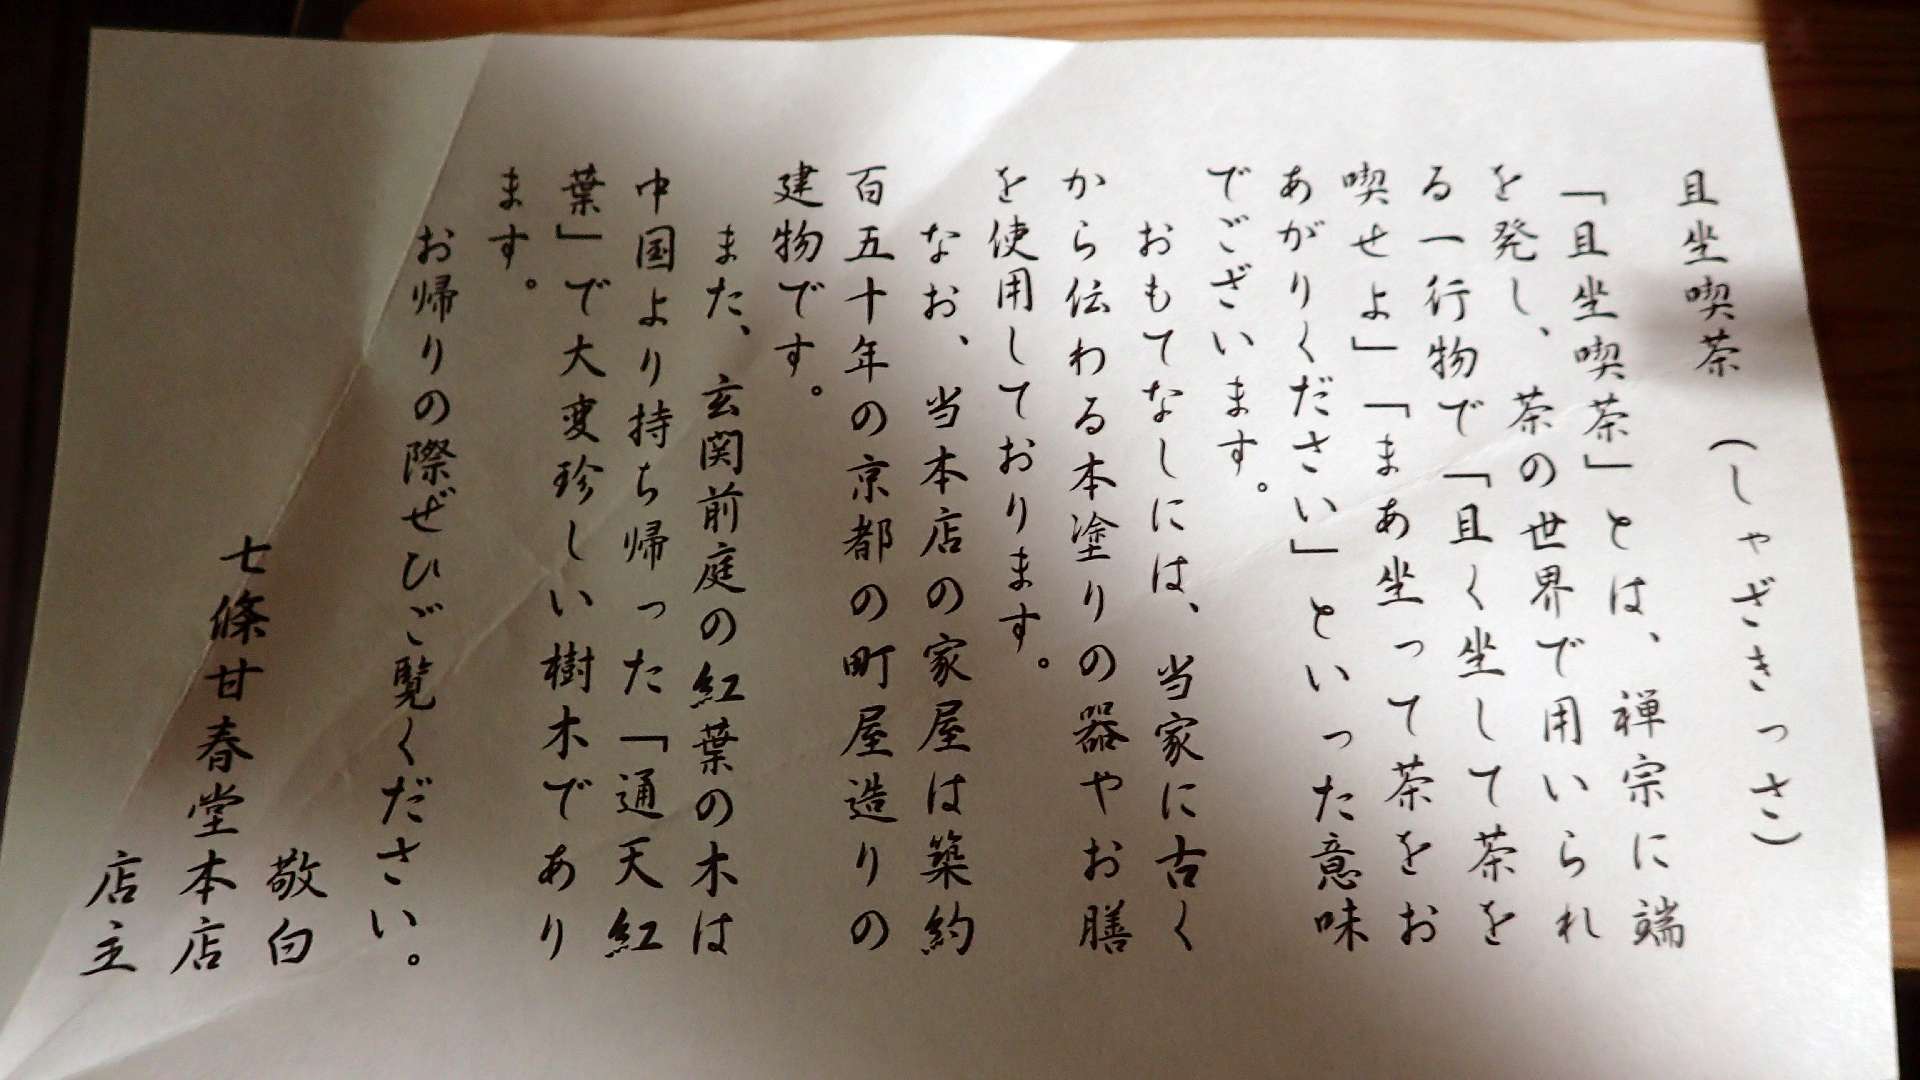 且坐喫茶 (しゃざきっさ)
「且坐喫茶」とは、禅宗に端
を発し、茶の世界で用いられ
る一行物で「且く坐して茶を
喫せよ」「まあ坐って茶をお
あがりください」といった意味
でございます。
おもてなしには、当家に古く
から伝わる本塗りの器やお膳
を使用しております。
なお、当本店の家屋は築約
百五十年の京都の町屋造りの
建物です。
また、玄関前庭の紅葉の木は
中国より持ち帰った「通天紅
葉」で大変珍しい樹木であり
ます。
お帰りの際ぜひご覧ください。
敬白
七條甘春堂本店
店主